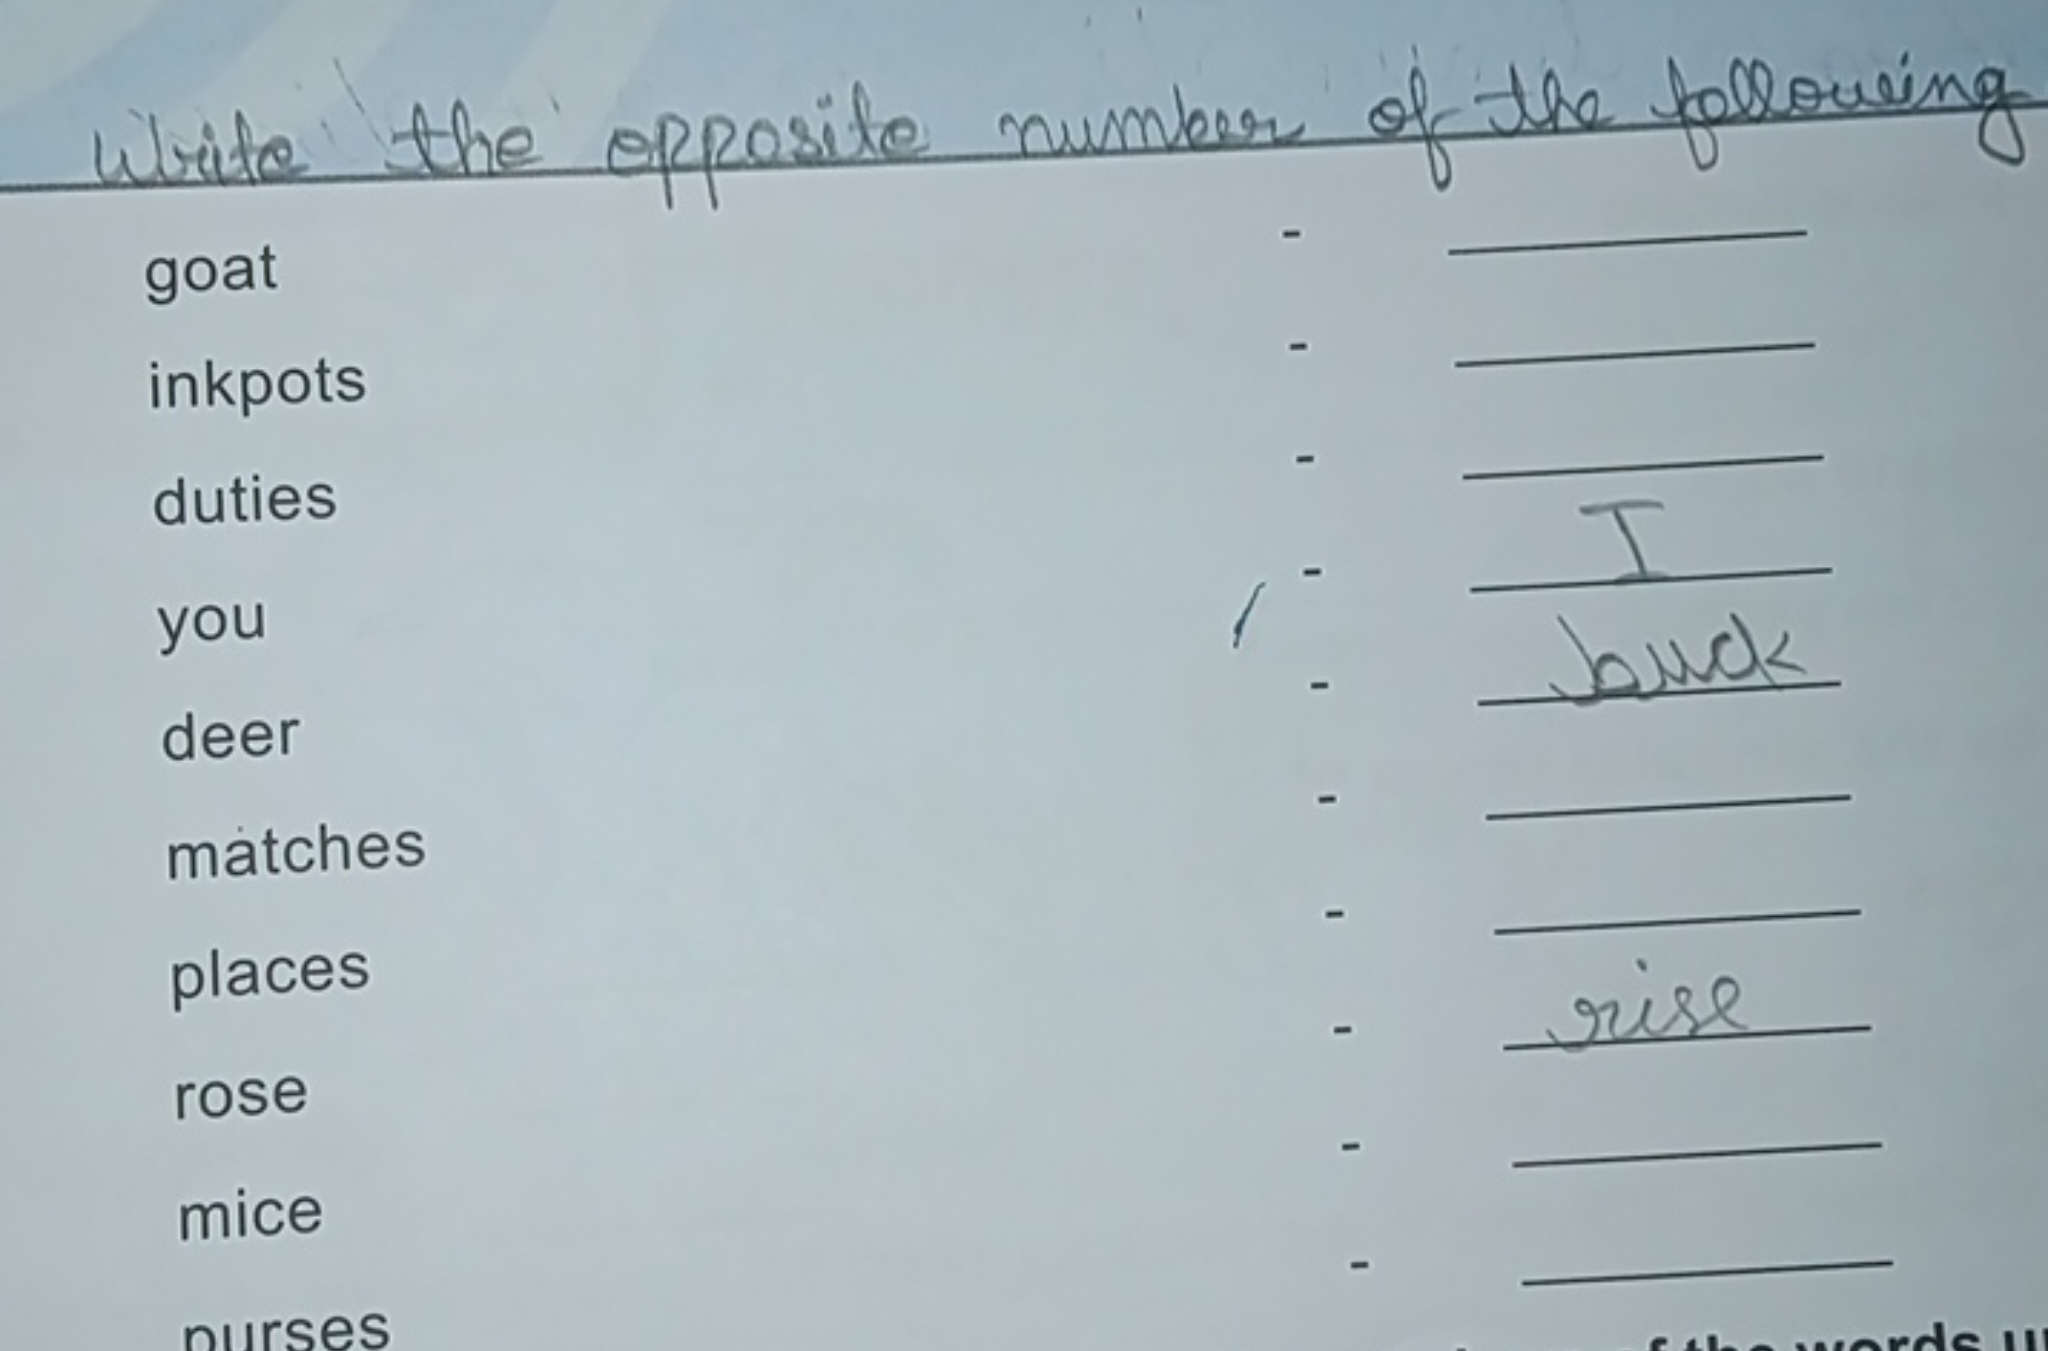 Write the opposite number of the following
goat -
inkpots -
duties -
you - I
deer - buck
matches -
places -
rose - rise
mice -
purses -
of the words